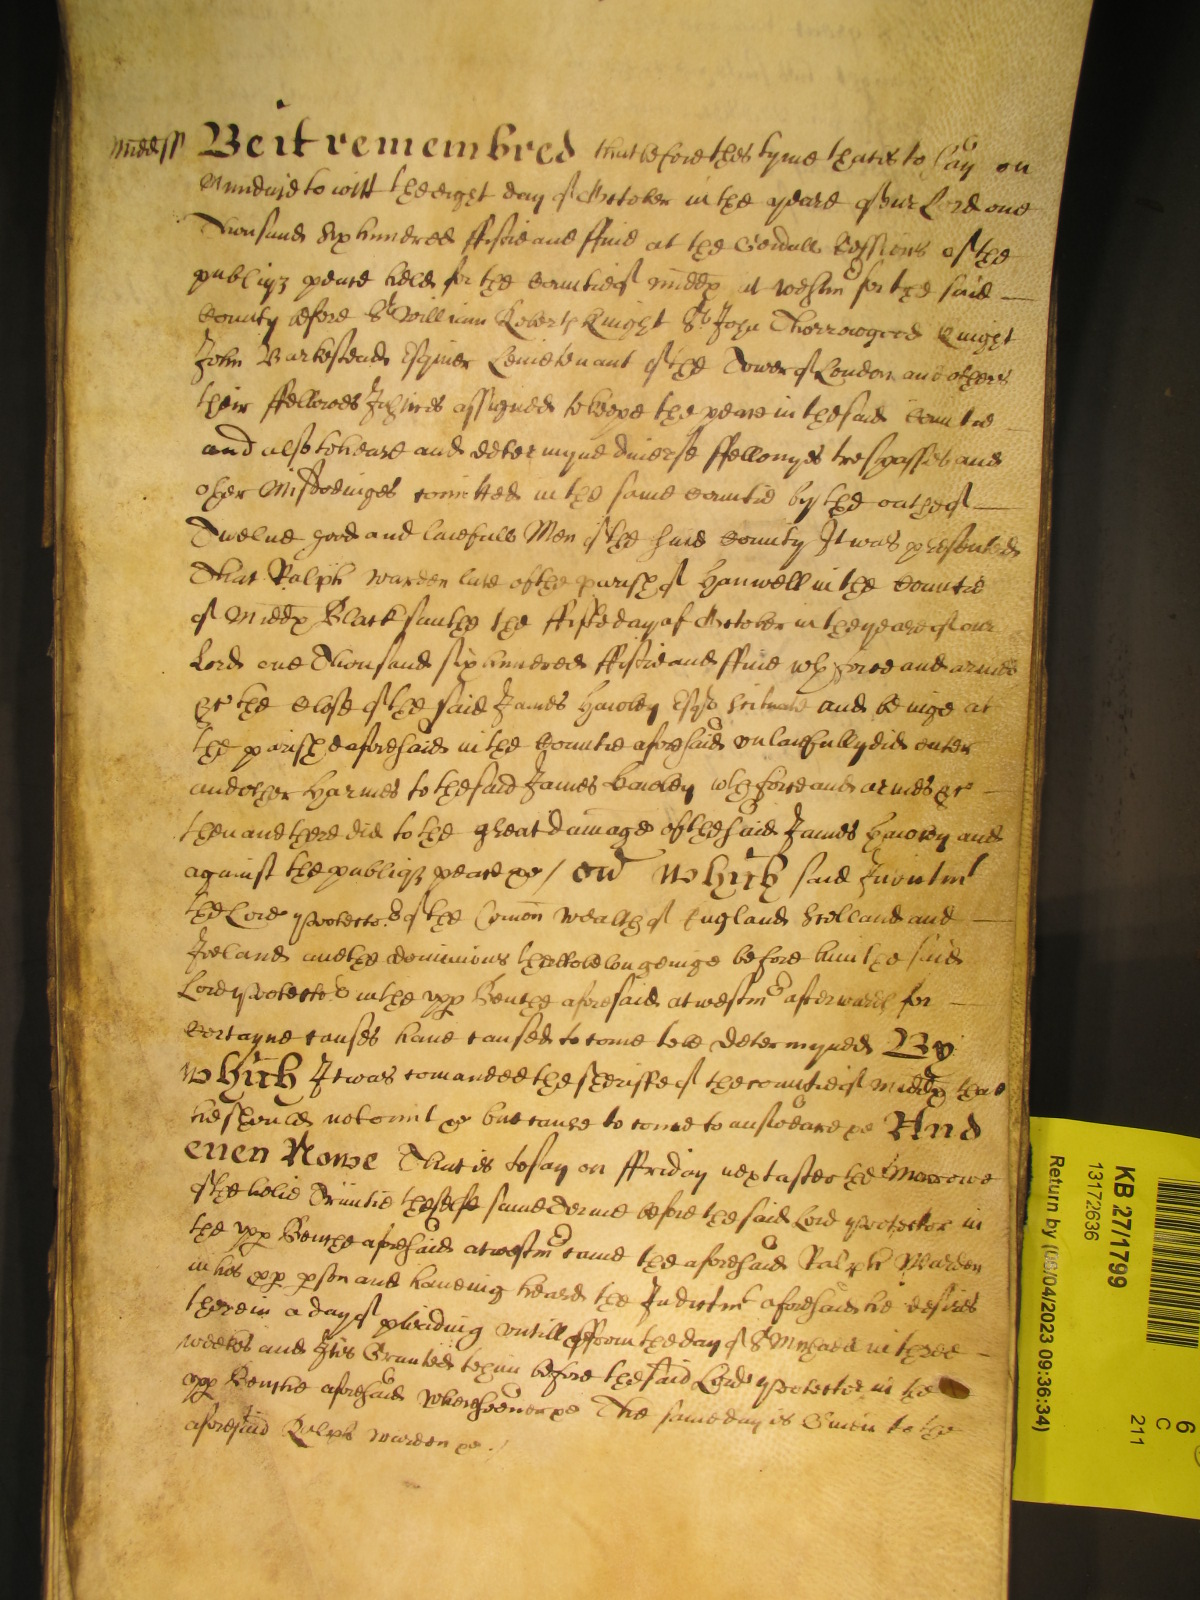 Middss Be it remembred that before this tyme that is to say on
Munday to witt the eight day of October in the yeare of our Lord one
Thousand six hundred fiftie and ffive at the Genall Sessions of the
publiqz peace held for the Countie of Middx at Westmr for the said
County before Sr William Roberts Knight Sr John Thorrowgood Knight
John Barkestead Esquier Leiuetenant of the Tower of London and others
their ffellowes Justices assigned to keepe the peace in the said Countie
and also to heare and determyne diverse ffellonyes trespasses and
other Misdoeinges comitted in the same Countie by the oathes of
Twelve good and lawfull Men of the said County It was presented
That Ralph Warden late of the parish of Hanwell in the Countie
of Middx Blacksmith the ffifte day of October in the yeare of our
Lord one Thousand six hundred ffiftie and ffive wth force and armes
&c the Close of the said James Hawley Esqr scituate and beinge at
the parishe aforesaid in the Countie aforesaid unlawfully did enter
and other harmes to the said James Hawley wth force and armes &c
then and there did to the great damage of the said James Hawley and
against the publiqz peace &c / wch said Indictmt
the Lord Protector of the Comon wealth of England Scotland and
Ireland and the dominions thereto belongeinge before him the said
Lord Protector in the upp Benche aforesaid at Westmr afterwards for
Certayne causes have caused to come to be determyned By
which It was comanded the sheriffe of the countie of Middx that
he should not omit &c but cause to come to answeare &c And
even Nowe That is to say on ffriday next after the Morrowe
of the holie Trinitie the selfe same Terme before the said Lord Protector in
the upp Benche aforesaid at Westmr came the aforesaid Ralph Warden
in his pp pson and haveing heard the Indictmt aforesaid he desires
therein a day of pleading untill ffrom the day of St Michaell in three
weekes and It is Graunted to him before the said Lord Protector in the
upp Benche aforesaid wheresoever &c The same day is Given to the
aforesaid Ralph Warden &c
KB 27/1799
13172636
Return by (08/04/2023 09:36:34)
6
C
211